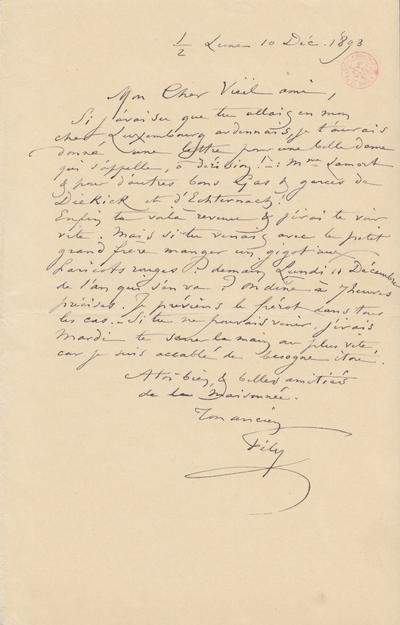 1/2 Lune 10 Déc. 1893
Mon Cher Vieil ami,
Si j'avais su que tu allais en mon
cher Luxembourg ardennais, je t'aurais
donné une lettre pour une belle dame
qui s'appelle, ô dérision! : Mme Lamort
& pour d'autres bons Gas & garces de
Diekick et d'Echternach!
Enfin te voilà revenu & j'irai te voir
vite. Mais si tu venais avec le petit
grand frère manger un gigot aux
haricots rouges? demain, Lundi 11 Décembre
de l'an qui s'en va? On dîne à 7 heures
précises. Je préviens le frérot dans tous
les cas. – Si tu ne pouvais venir, j'irais
Mardi te serrer la main au plus vite,
car je suis accablé de besogne
A toi bien, & belles amitiés
de la Maisonnée.
Ton ancien
Fély